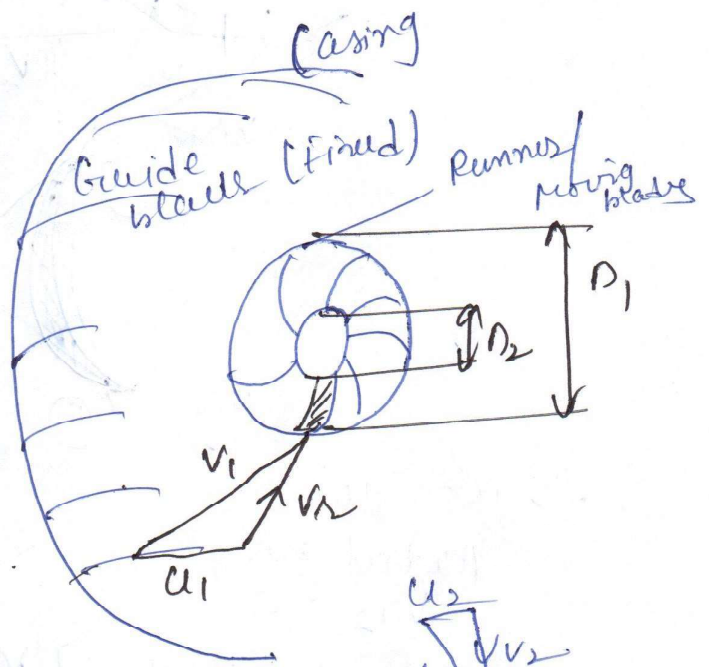 Casing
Guide blades (Fixed)
Runner/
Moving blades
D1
D2
V1
Vr
U1
U2
V2